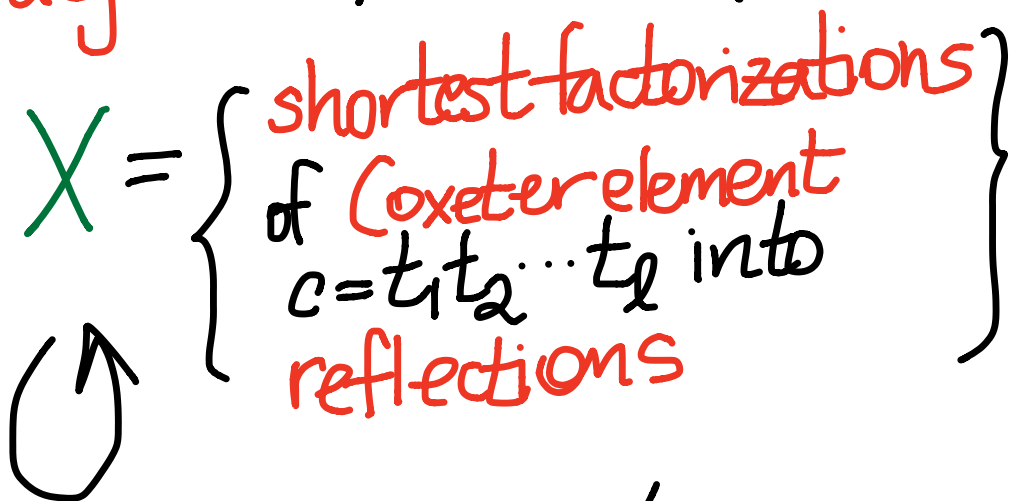 X = { shortest factorizations }
of Coxeter element
c = t₁t₂ ⋯ tₗ into
reflections